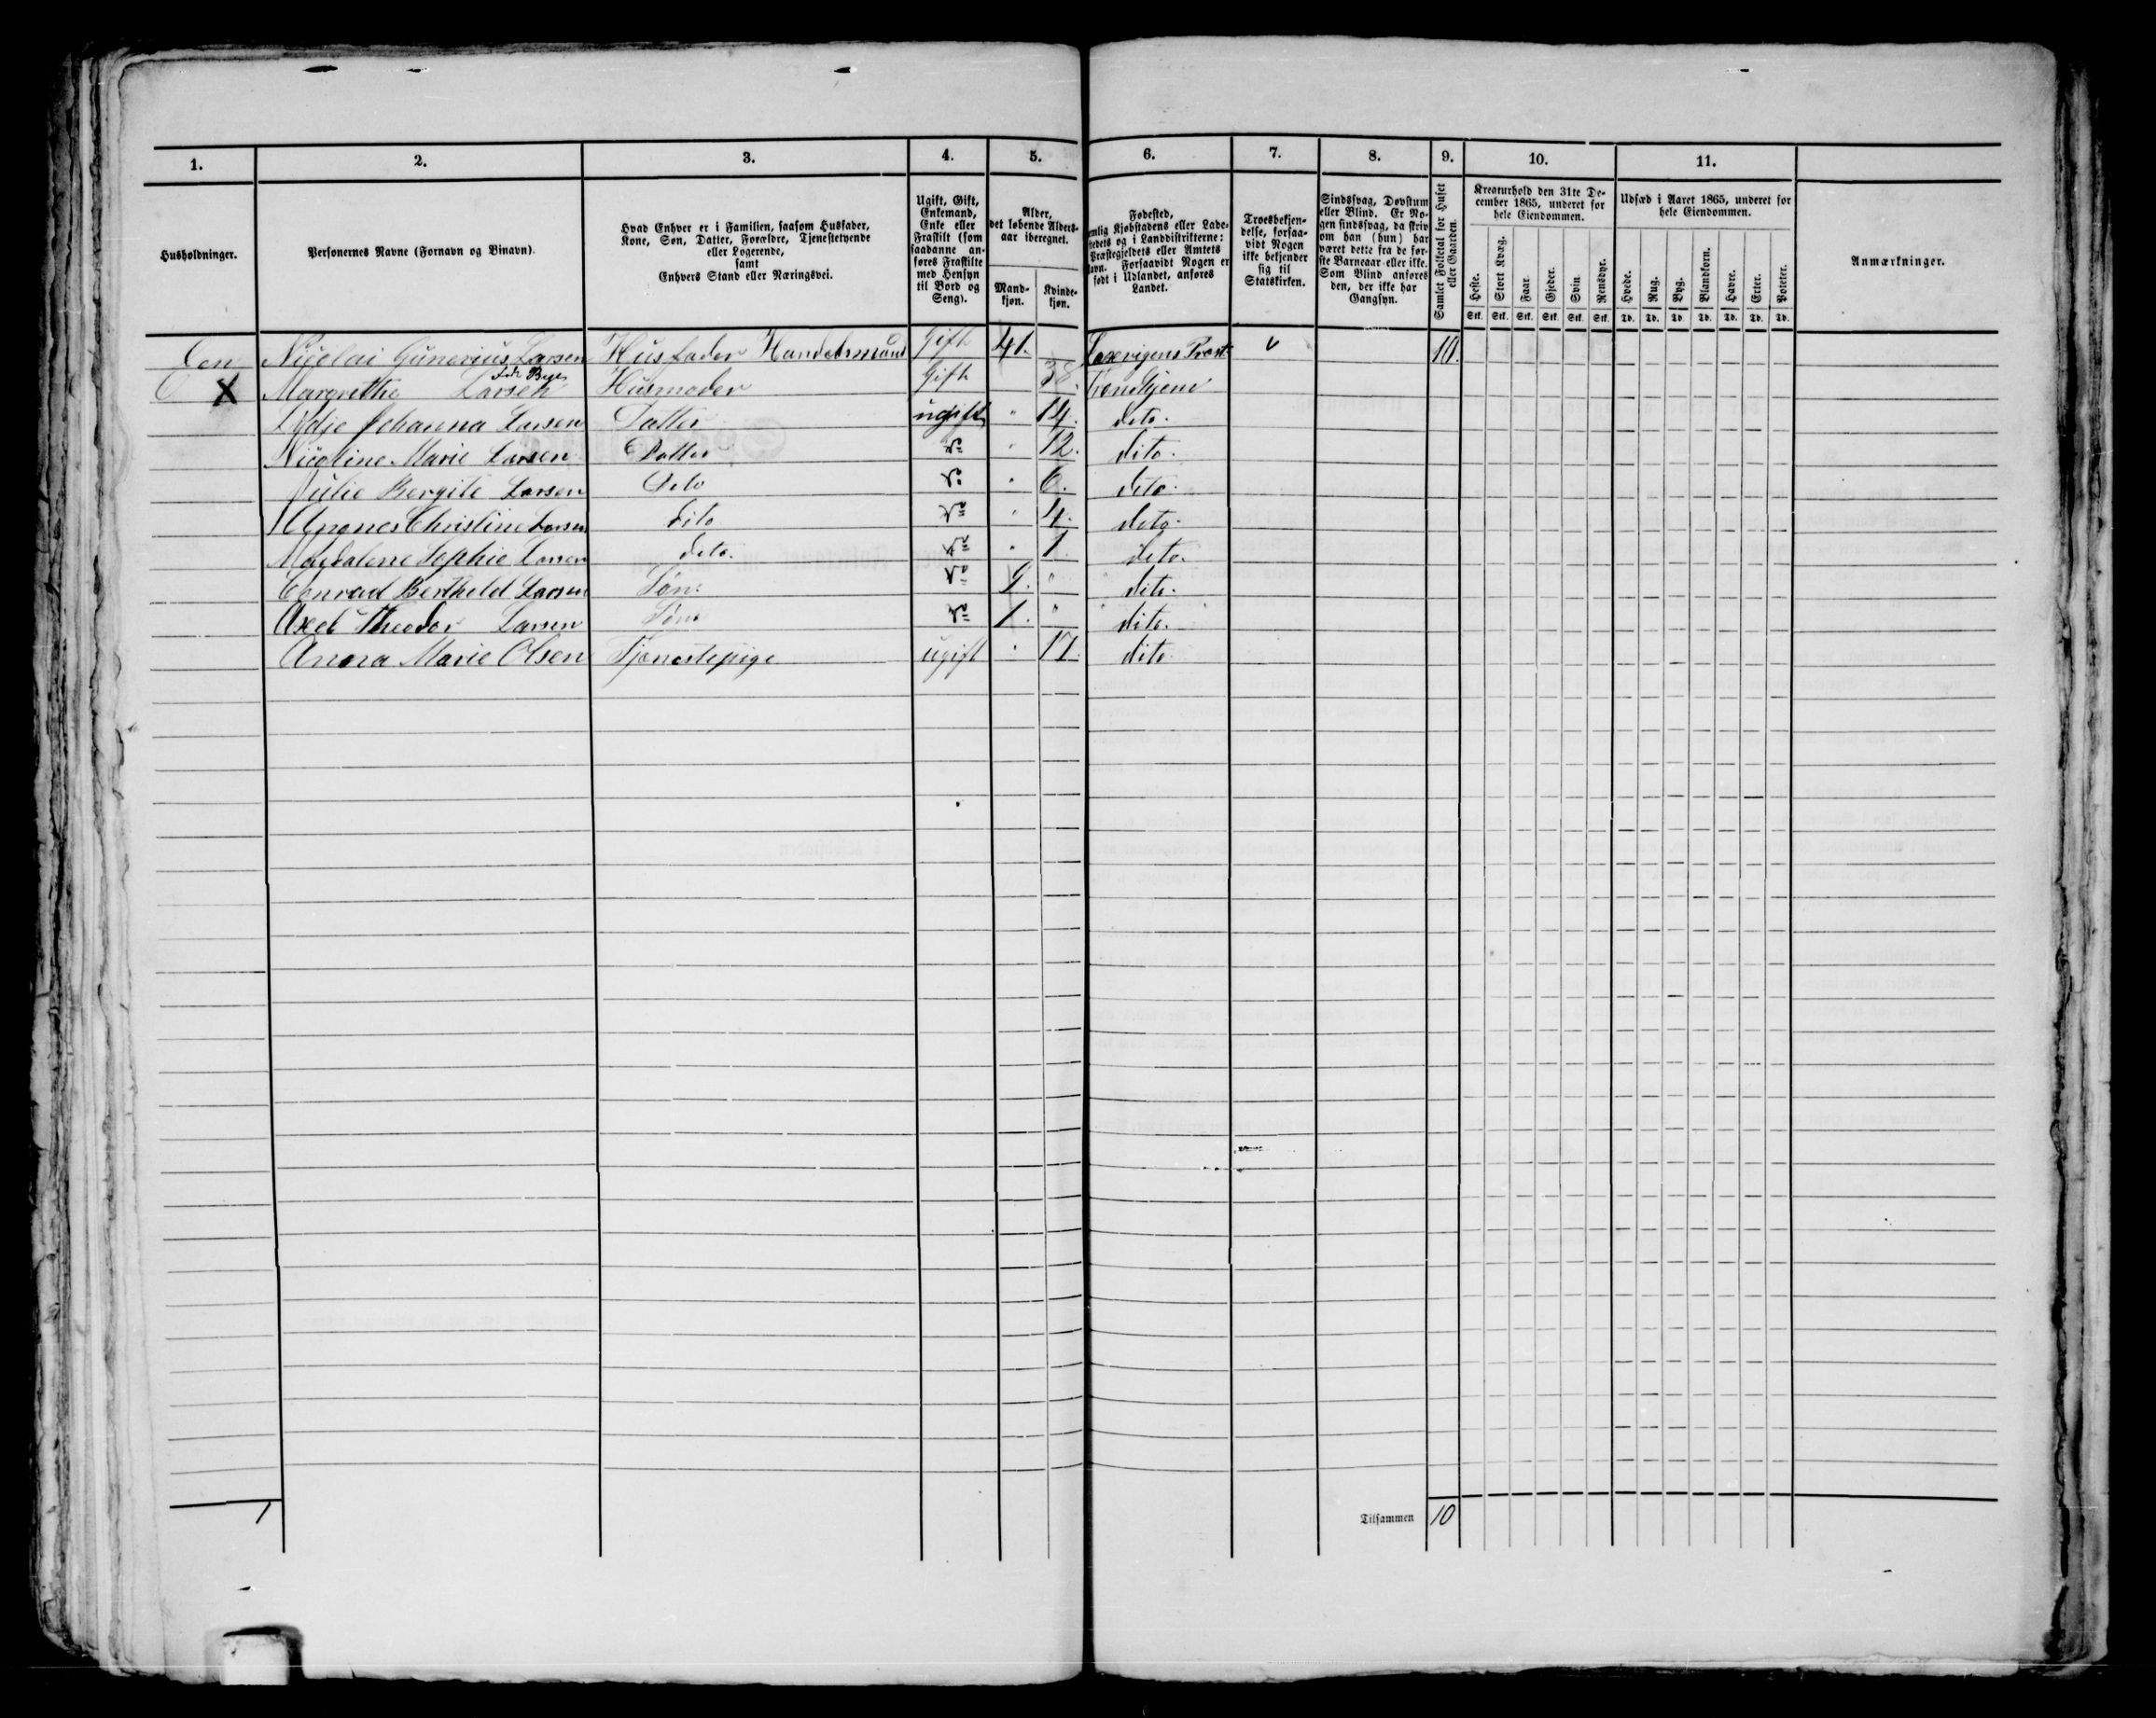 1. 2. 3. 4. 5. 6. 7. 8. 9. 10. 11.
Husholdninger.
Personernes Navne (Fornavn og Binavn).
Hvad Enhver er i Familien, saasom Husfader,
Kone, Søn, Datter, Forældre, Tjenestetyende
eller Logerende,
samt
Enhvers Stand eller Næringsvei.
Ugift, Gift,
Enkemand,
Enke eller
Fraskilt (som
saadanne an-
føres Fraskilte
med Hensyn
til Bord og
Seng).
Alder,
det løbende Alders-
aar iberegnet.
Mand-
kjøn.
Kvinde-
kjøn.
Fødested,
emlig Kjøbstadens eller Lade-
stedets og i Landdistrikterne:
Præstegjeldets eller Amtets
avn. Forsaavidt Nogen er
født i Udlandet, anføres
Landet.
Troesbekjen-
delse, forsaa-
vidt Nogen
ikke bekjender
sig til
Statskirken.
Sindssvag, Døvstum
eller Blind. Er No-
gen sindssvag, da skriv
om han (hun) har
været dette fra de før-
ste Barneaar eller ikke.
Som Blind anføres
den, der ikke har
Gangsyn.
Samlet Folketal for Huset
eller Gaarden.
Kreaturhold den 31te De-
cember 1865, underet for
hele Eiendommen.
Heste. Stort Kvæg. Faar. Gjeder. Svin. Rensdyr.
Stk. Stk. Stk. Stk. Stk. Stk.
Udsæd i Aaret 1865, underet for
hele Eiendommen.
Hvede. Rug. Byg. Blandkorn. Havre. Erter. Poteter.
Td. Td. Td. Td. Td. Td. Td.
Anmærkninger.
Een Nicolai Gunerius Larsen Husfader Handelsmand Gift 41. 10.
X Margrethe Larsen Husmoder Gift 38.
Johanna Larsen Datter ugift " 14. dito.
Nicoline Marie Larsen Datter do " 12. dito.
Julie Bergite Larsen Dito do " 6. dito.
Agnes Christine Larsen dito do " 4. dito.
Magdalene Sophie Larsen dito. do " 1. dito.
Conrad Berthold Larsen Søn do 9. " dito.
Axel Theodor Larsen Søn do 1. " dito.
Anna Marie Olsen Tjenestepige ugift " 17. dito
1
Tilsammen 10